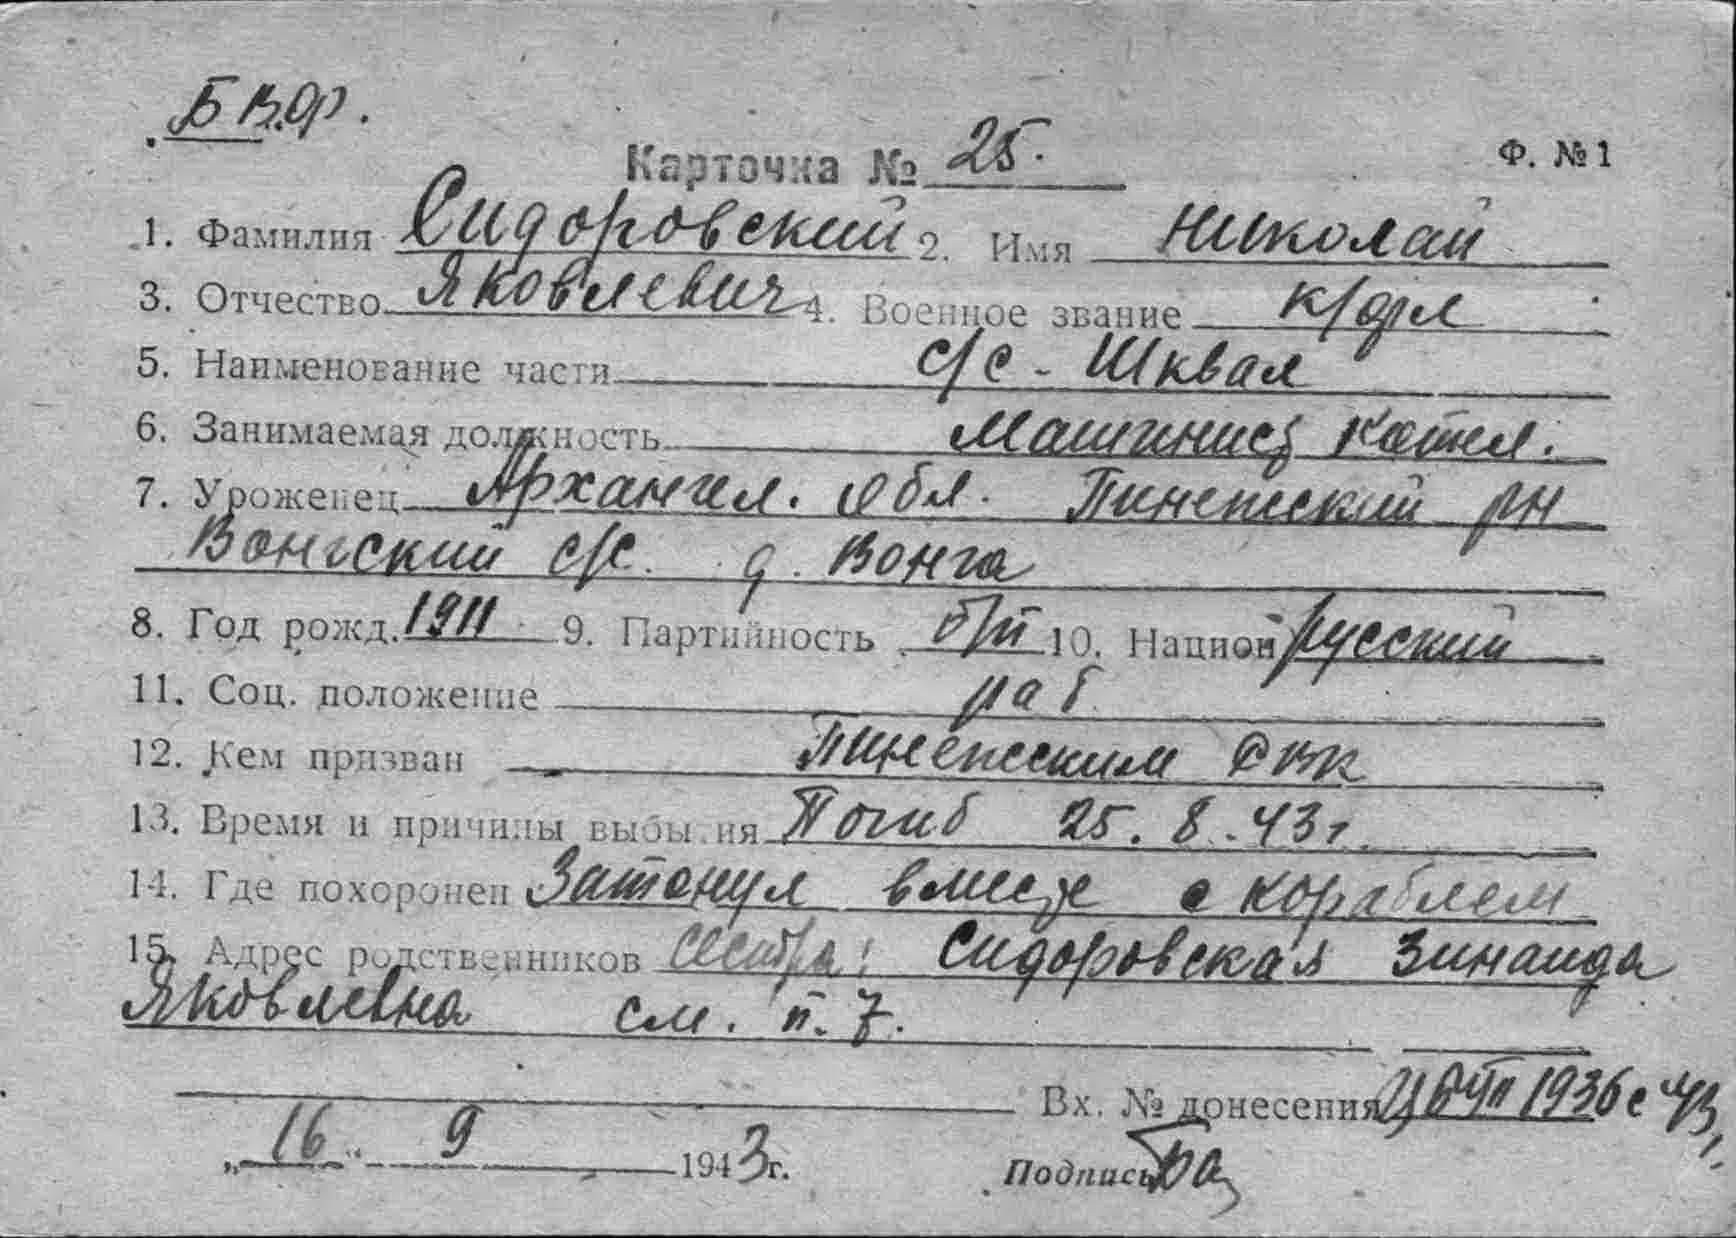 Б В.Ф.
Карточка № 25. Ф. №1
1. Фамилия Сидоровский 2. Имя Николай
3. Отчество Яковлевич 4. Военное звание к/фл
5. Наименование части с/с - Шквал
6. Занимаемая должность Машинист котел.
7. Уроженец Архангел. обл. Пинежский рн
Вонгский с/с. д. Вонга
8. Год рожд. 1911 9. Партийность б/п 10. Национ русский
11. Соц. положение раб
12. Кем призван Пинежским РВК
13. Время и причины выбытия Погиб 25.8.43г.
14. Где похоронен Затонул вместе с кораблем
15. Адрес родственников сестра: Сидоровская Зинаида
Яковлевна см. п. 7.
Вх. № донесения 1936с 43г.
„16" 9 1943г. Подпись